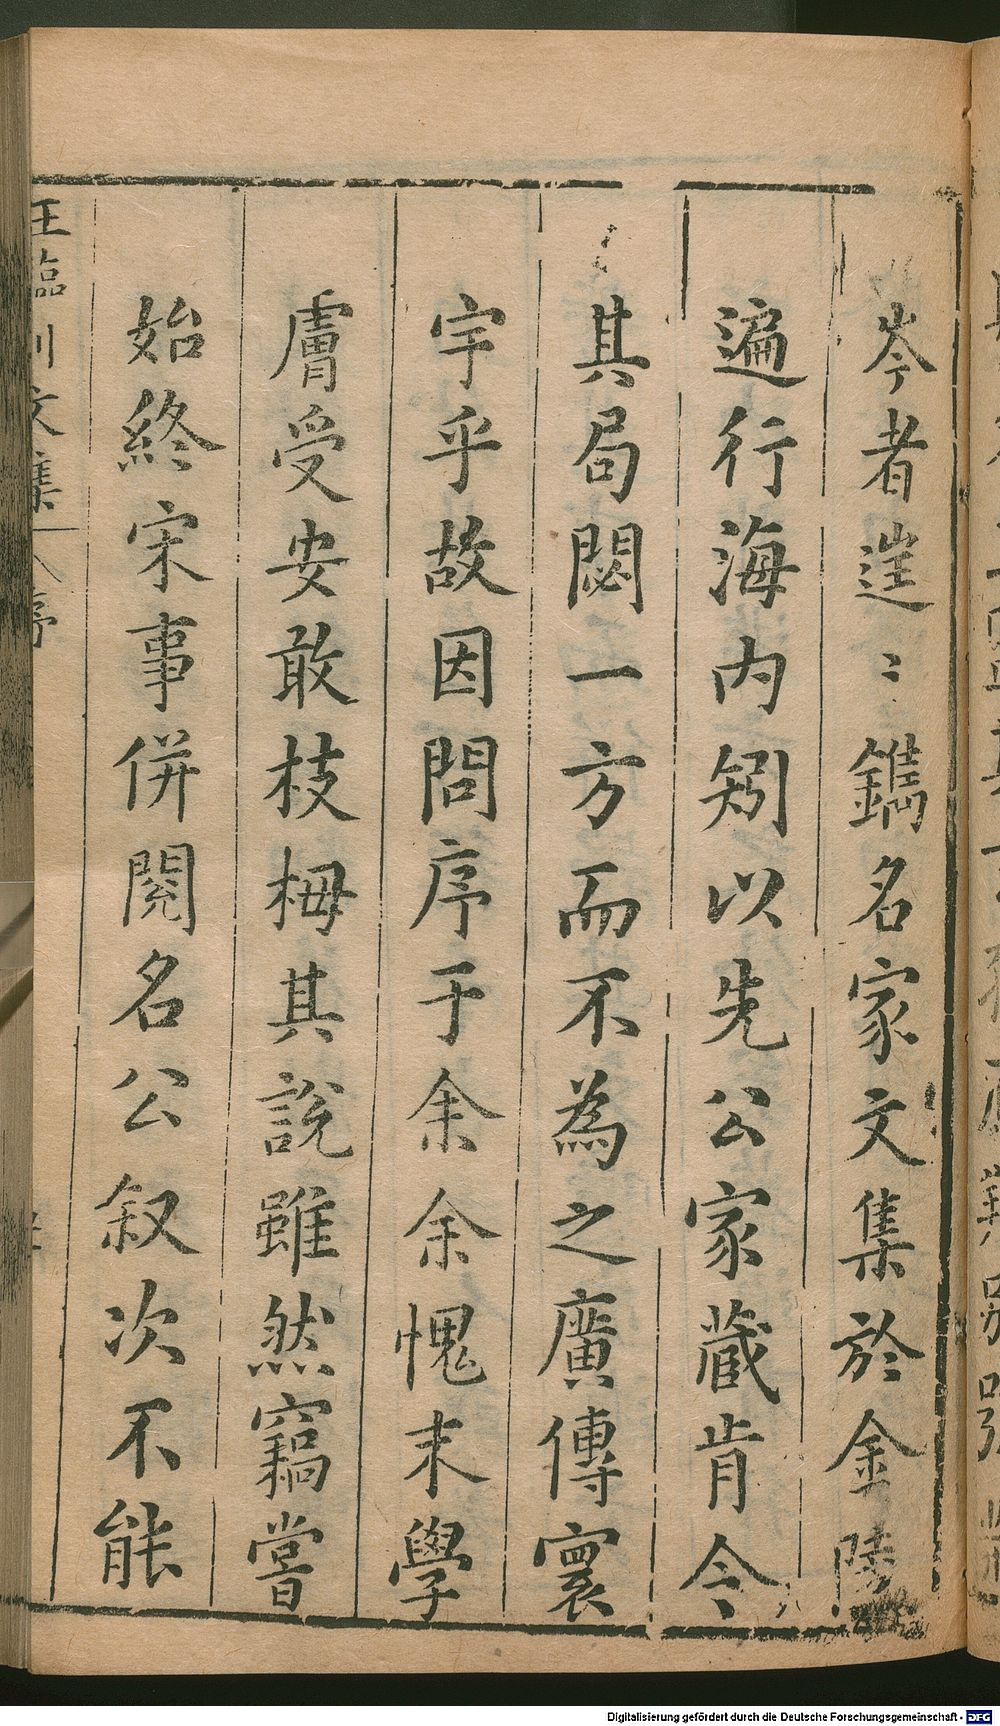 岑者逞〻鐫名家文集於金陵
遍行海内矧以先公家藏肯令
其局閟一方而不為之廣傳寰
宇乎故因問序于余余愧末學
膚受安敢枝栂其說雖然竊嘗
始終宋事併閱名公叙次不能
王臨川文集 序
Digitalisierung gefördert durch die Deutsche Forschungsgemeinschaft - DFG